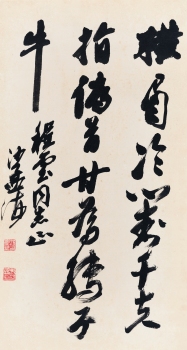 横眉冷对千夫
指俯首甘为孺子
牛
程云同志正
沙孟海